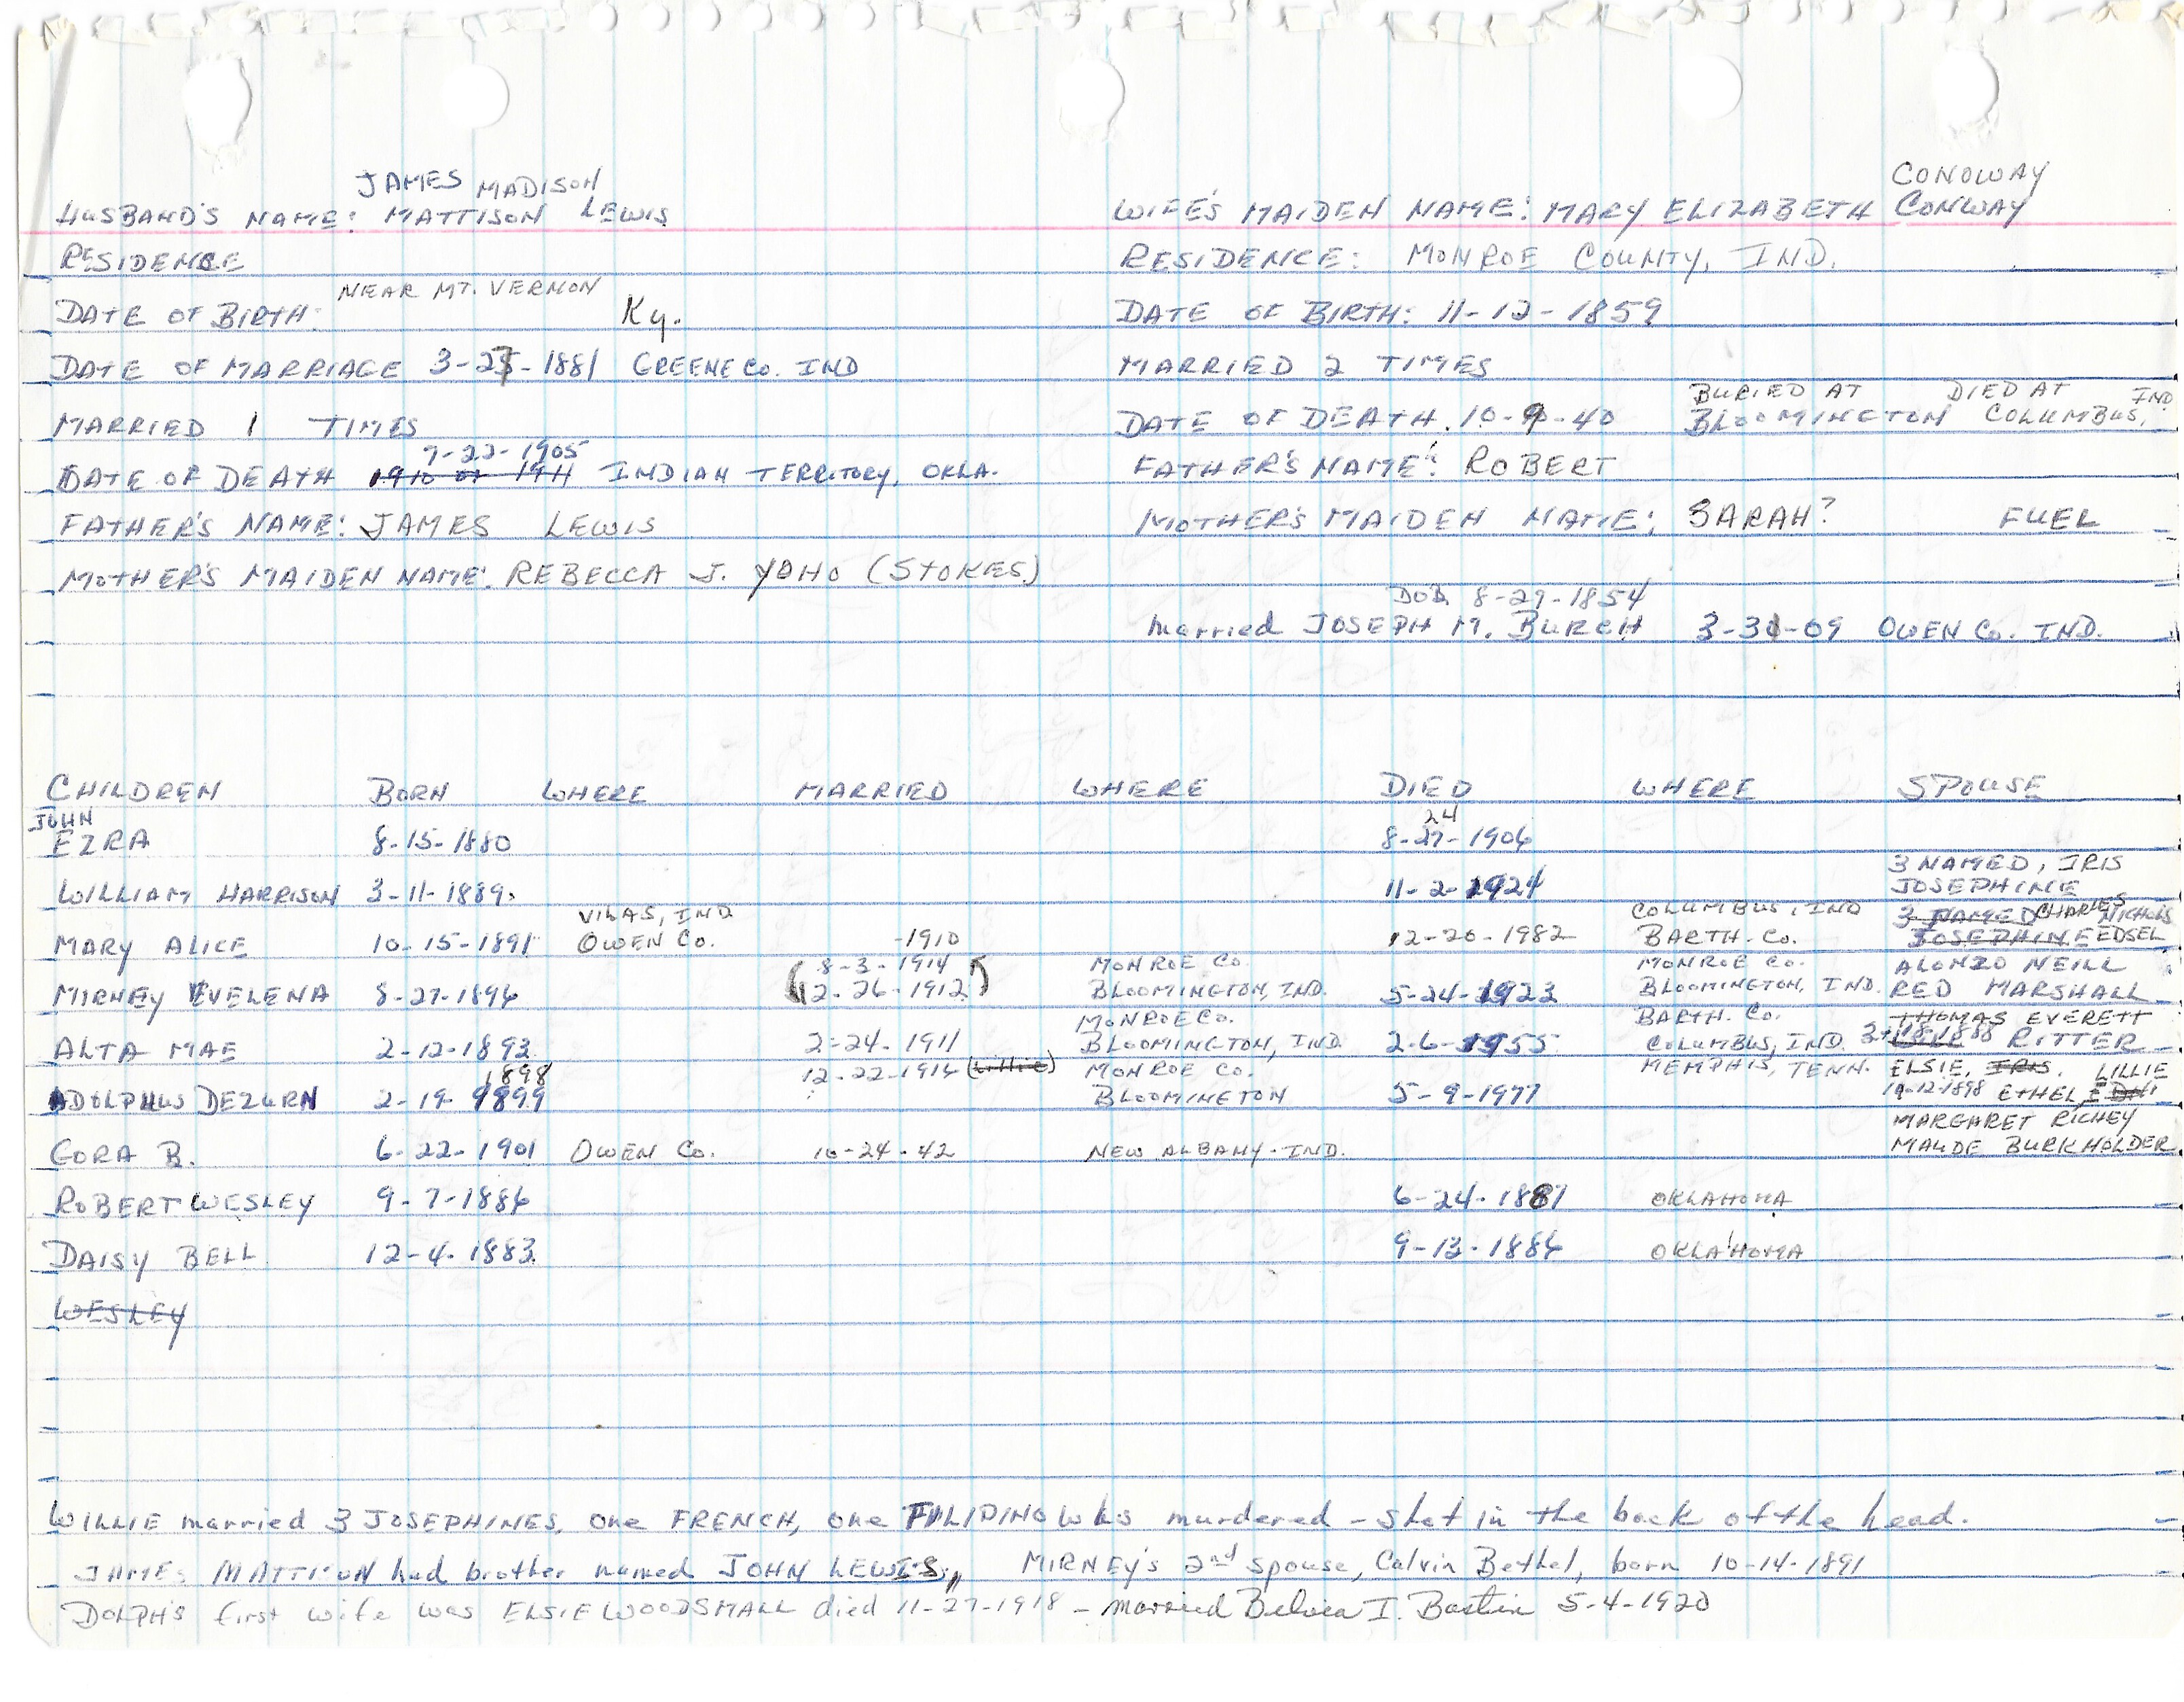 JAMES MADISON CONOWAY
HUSBAND'S NAME: MATTISON LEWIS WIFE'S MAIDEN NAME: MARY ELIZABETH CONWAY
RESIDENCE RESIDENCE: MONROE COUNTY, IND.
NEAR MT. VERNON
DATE OF BIRTH: Ky. DATE OF BIRTH: 11-12-1859
DATE OF MARRIAGE 3-27-1881 GREENE Co. IND MARRIED 2 TIMES
BURIED AT DIED AT IND
MARRIED 1 TIMES DATE OF DEATH. 10-9-40 BLOOMINGTON COLUMBUS,
9-22-1905
DATE OF DEATH 1910 or 1911 INDIAN TERRITORY, OKLA. FATHER'S NAME: ROBERT
FATHER'S NAME: JAMES LEWIS MOTHER'S MAIDEN NAME: SARAH? FUEL
MOTHER'S MAIDEN NAME: REBECCA J. YOHO (STOKES)
DOB 8-29-1854
Married JOSEPH M. BURCH 3-31-09 OWEN Co. IND.
CHILDREN BORN WHERE MARRIED WHERE DIED WHERE SPOUSE
JOHN 24
EZRA 8-15-1880 8-27-1906
3 NAMED, IRIS
WILLIAM HARRISON 3-11-1889. 11-2-1924 JOSEPHINE
VILAS, IND COLUMBUS, IND 3 NAMED CHARLES NICHOLS
MARY ALICE 10-15-1891 OWEN Co. -1910 12-20-1982 BARTH. Co. JOSEPHINE EDSEL
8-3-1914 MONROE Co. MONROE Co. ALONZO NEILL
MIRNEY EVELENA 8-27-1896 (12-26-1912) BLOOMINGTON, IND. 5-24-1923 BLOOMINGTON, IND. RED MARSHALL
MONROE Co. BARTH. Co. THOMAS EVERETT
ALTA MAE 2-12-1893 2-24-1911 BLOOMINGTON, IND 2-6-1955 COLUMBUS, IND. 1888 RITTER
1898 12-22-1916 (Lillie) MONROE Co. MEMPHIS, TENN. ELSIE, IRIS. LILLIE
ADOLPHUS DEZURN 2-19-1899 BLOOMINGTON 5-9-1977 10-12-1898 ETHEL
MARGARET RICHEY
CORA B. 6-22-1901 OWEN Co. 10-24-42 NEW ALBANY-IND. MAUDE BURKHOLDER
ROBERT WESLEY 9-7-1886 6-24-1887 OKLAHOMA
DAISY BELL 12-4-1883 9-13-1886 OKLAHOMA
WESLEY
WILLIE married 3 JOSEPHINES, one FRENCH, one FILIPINO was murdered - shot in the back of the head.
JAMES MATTISON had brother named JOHN LEWIS, MIRNEY's 2nd spouse, Calvin Bethel, born 10-14-1891
DOLPH'S first wife was ELSIE WOODSMALL died 11-27-1918 - married Belvia I. Bastin 5-4-1920